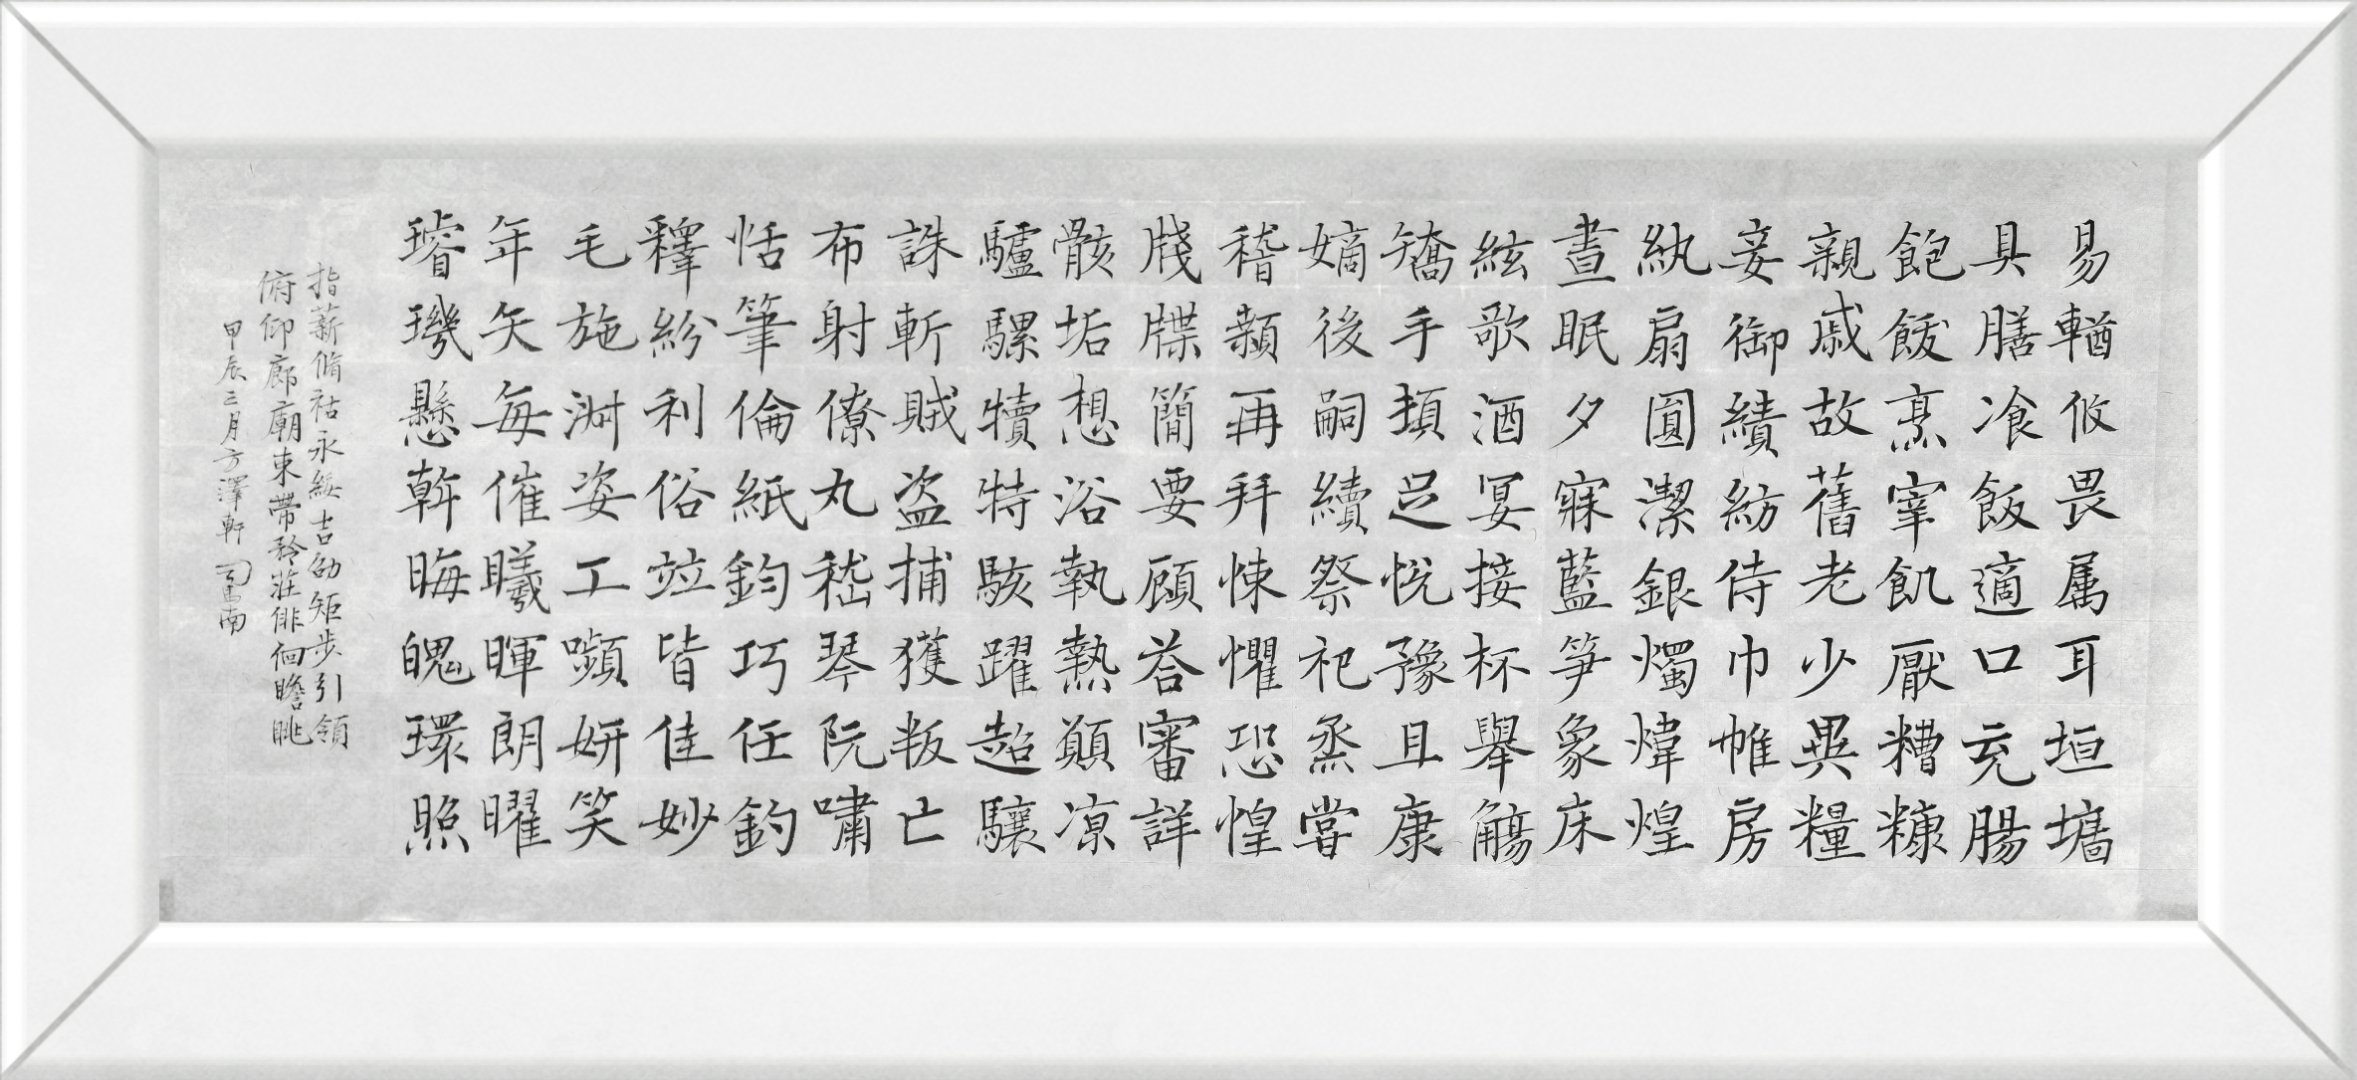 易輶攸畏属耳垣墻
具膳飡飯適口充腸
飽飫烹宰飢厭糟糠
親戚故舊老少異糧
妾御績紡侍巾帷房
紈扇圓潔銀燭煒煌
晝眠夕寐藍笋象床
絃歌酒宴接杯舉觴
矯手頓足悅豫且康
嫡後嗣續祭祀烝嘗
稽顙再拜悚懼恐惶
牋牒簡要顧荅審詳
骸垢想浴執熱願涼
驢騾犢特駭躍超驤
誅斬賊盗捕獲叛亡
布射僚丸嵇琴阮嘯
恬筆倫紙鈞巧任釣
釋紛利俗竝皆佳妙
毛施淑姿工嚬妍笑
年矢每催曦暉朗曜
璿璣懸斡晦魄環照
指薪脩祜永綏吉劭矩步引領
俯仰廊廟束帶矜莊俳佪瞻眺
甲辰三月方澤軒